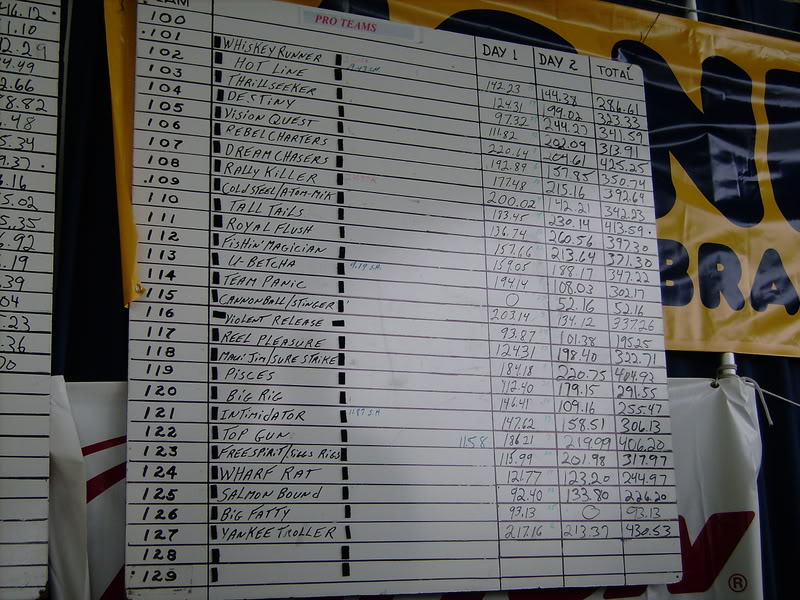 TEAM
PRO TEAMS
DAY 1 DAY 2 TOTAL
100
.101 WHISKEY RUNNER 142.23 144.38 286.61
102 HOT LINE 124.31 199.02 323.33
103 THRILLSEEKER 97.32 244.27 341.59
104 DESTINY 111.82 202.09 313.91
105 VISION QUEST 220.64 204.61 425.25
106 REBEL CHARTERS 192.89 157.85 350.74
107 DREAM CHASERS 177.48 215.16 392.64
108 RALLY KILLER 200.02 142.21 342.23
.109 COLD STEEL/ATOM-MIK 183.45 230.14 413.59.
110 TALL TAILS 136.74 260.56 397.30
111 ROYAL FLUSH 157.66 213.64 371.30
112 FISHIN' MAGICIAN 159.05 188.17 347.22
113 U-BETCHA 9.19 S.H. 194.14 108.03 302.17
114 TEAM PANIC 0 52.16 52.16
.115 CANNONBALL/STINGER 203.14 134.12 337.26
116 VIOLENT RELEASE 93.87 101.38 195.25
117 REEL PLEASURE 124.31 198.40 322.71
118 MAUI JIM/SURE STRIKE 184.18 220.75 404.93
119 PISCES 112.40 179.15 291.55
120 BIG RIG 146.41 109.16 255.47
121 INTIMIDATOR 11.87 S.H 147.62 158.51 306.13
122 TOP GUN 11.58 186.21 219.99 406.20
123 FREESPIRIT/SILKS RIGS 115.99 201.98 317.97
124 WHARF RAT 121.77 123.20 244.97
125 SALMON BOUND 92.40 133.80 226.20
126 BIG FATTY 93.13 0 93.13
127 YANKEE TROLLER 217.16 213.37 430.53
128
129
BRA
®